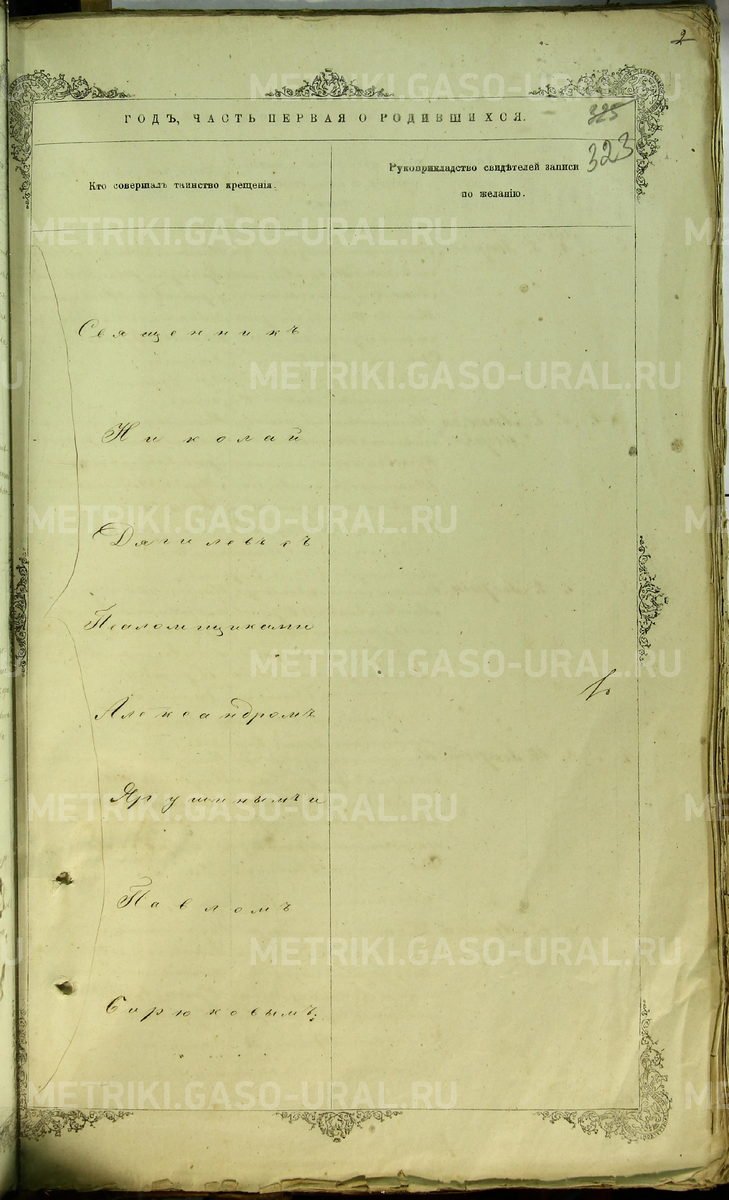 2
METRIKI.GASO-URAL.RU
ГОДЪ, ЧАСТЬ ПЕРВАЯ О РОДИВШИХСЯ.
325
323
Кто совершалъ таинство крещенія.
Рукоприкладство свидѣтелей записи
по желанію.
METRIKI.GASO-URAL.RU
Священникъ
METRIKI.GASO-URAL.RU
Николай
METRIKI.GASO-URAL.RU
Дягилевъ съ
Псаломщиками
METRIKI.GASO-URAL.RU
Александромъ
Ярушинымъ и
METRIKI.GASO-URAL.RU
Павломъ
METRIKI.GASO-URAL.RU
Бирюковымъ.
METRIKI.GASO-URAL.RU